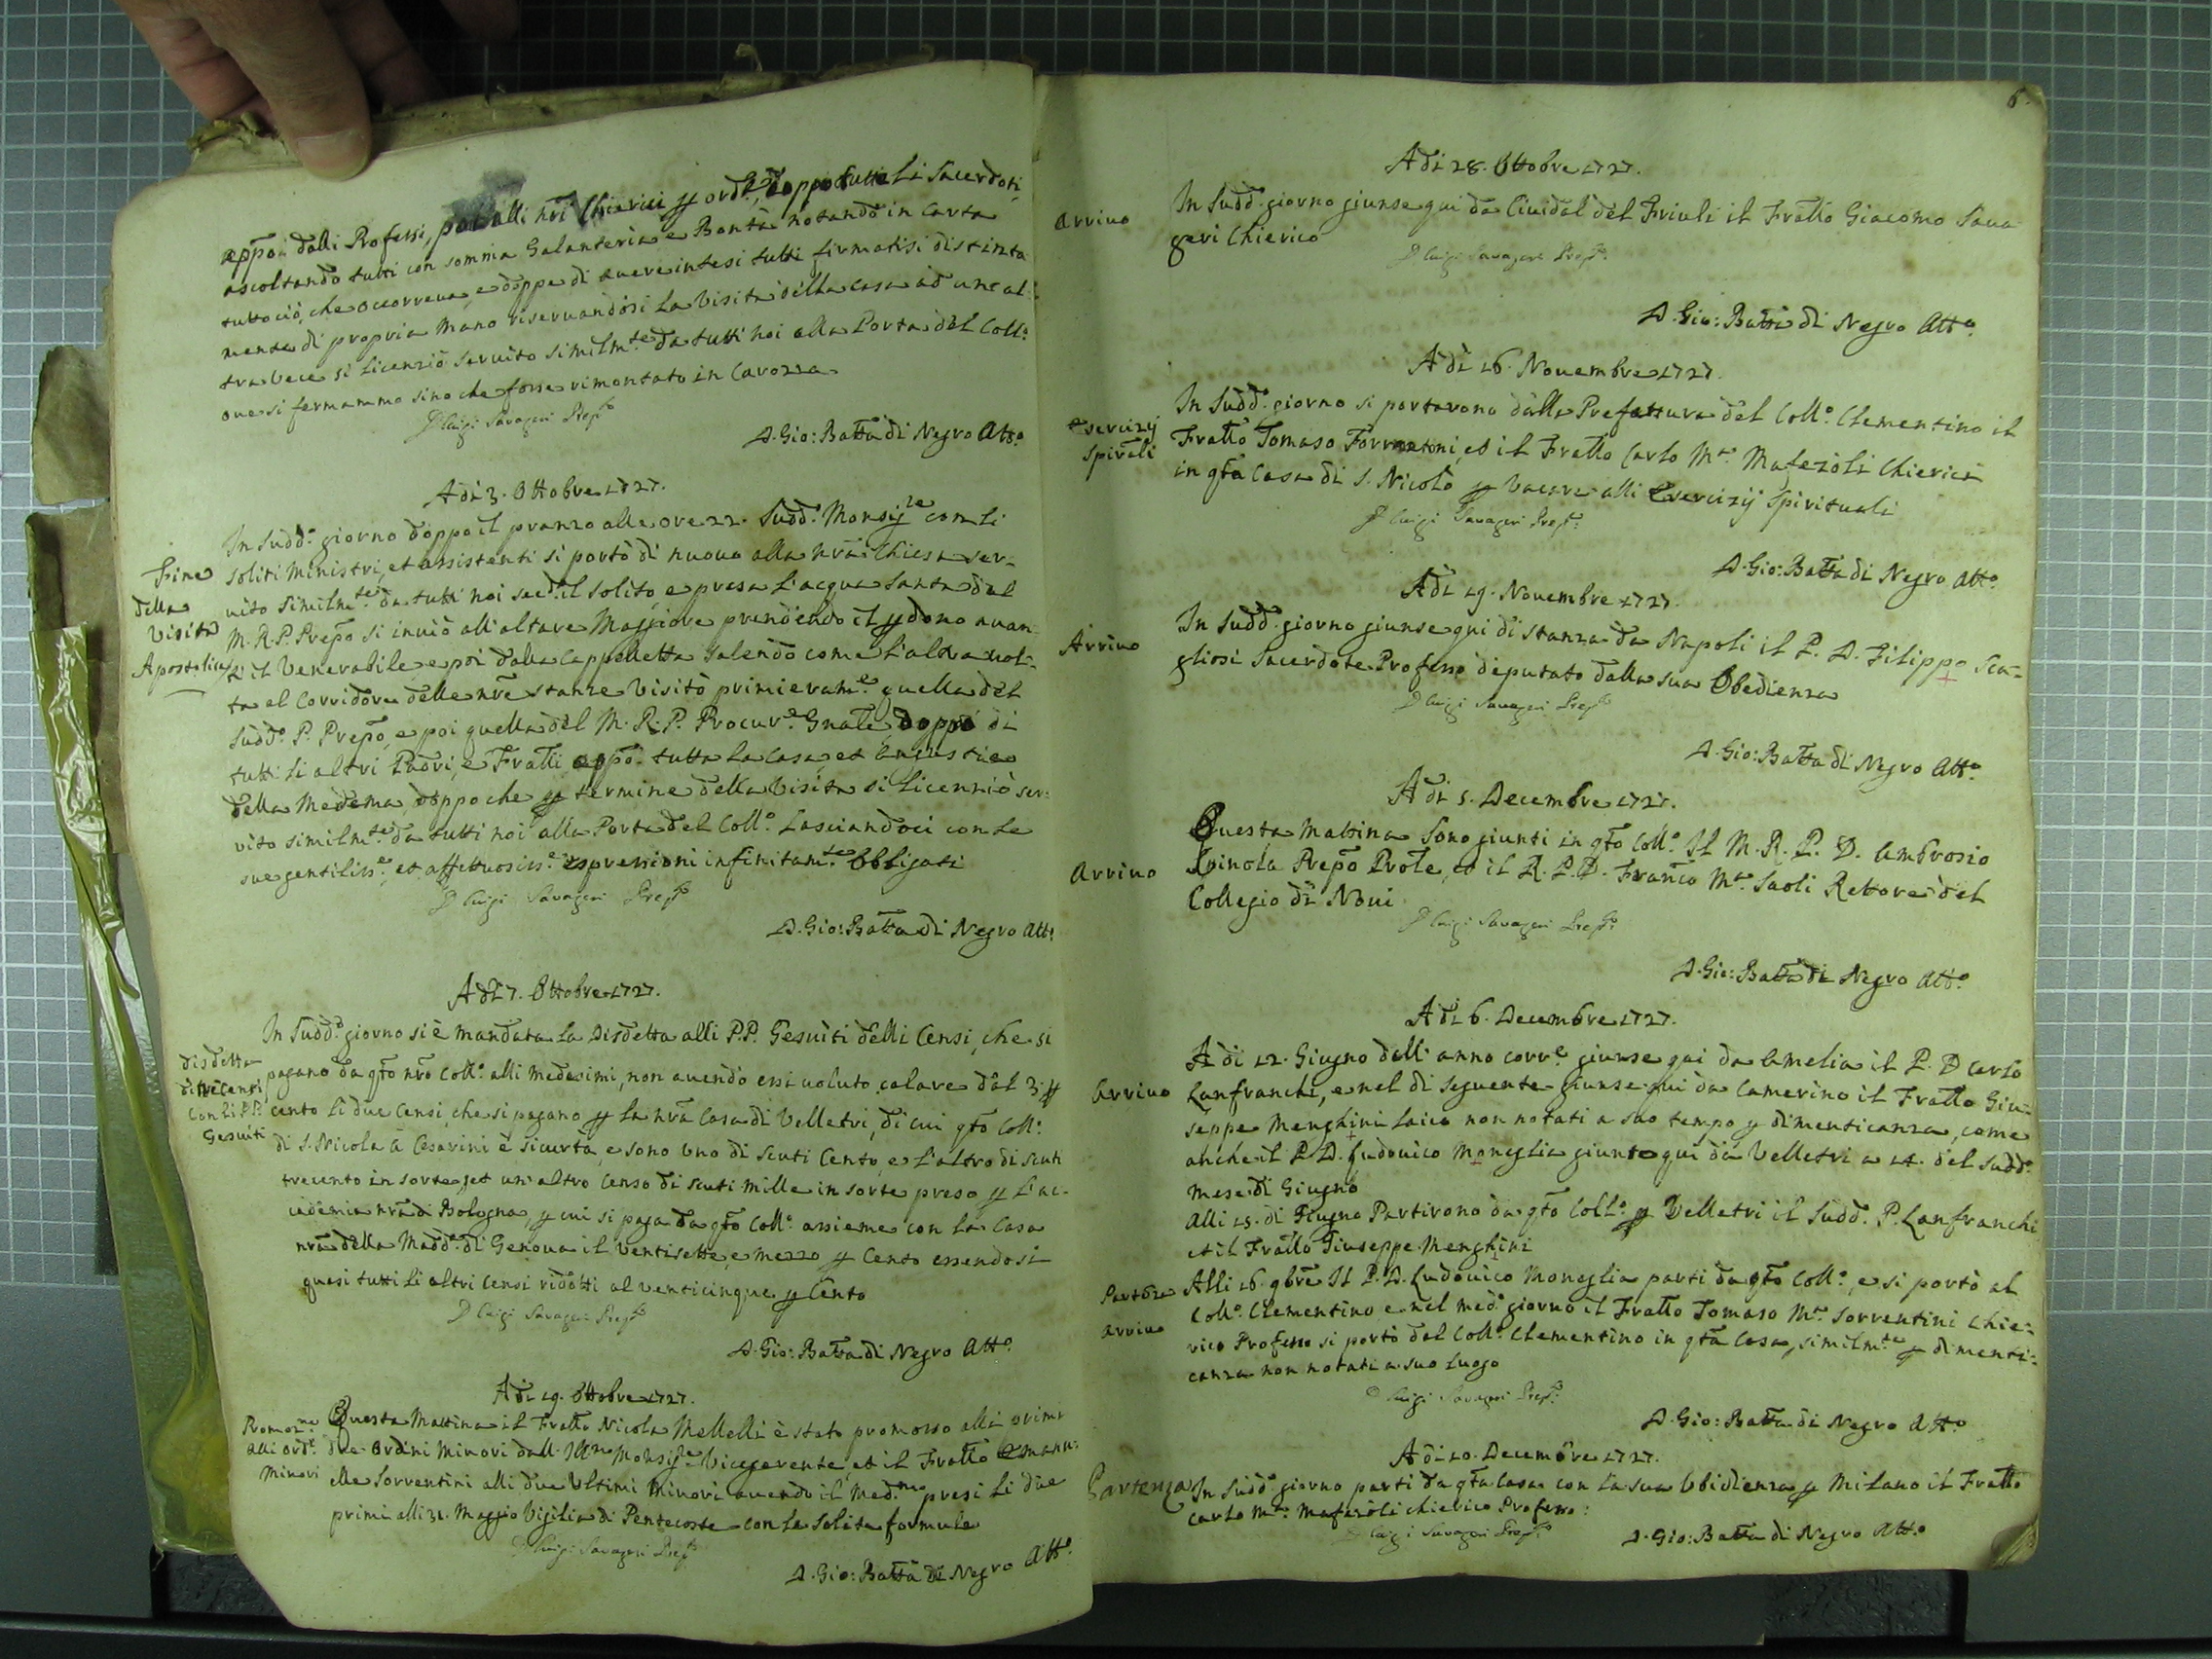 appõi dalli Professi, poi alli nr̃i Chierici p ord.e, doppo tutti li Sacerdoti
ascoltando tutti con somma Galanteria e Bontà notando in Carta
tutto ciò, che occorreva, e doppo di avere intesi tutti firmatisi distinta
mente di propria mano riservandosi la Visita della Casa ad un al-
tra vece si licenziò servito similm.te da tutti noi alla Porta del Coll.o
ove si fermammo sino che fosse rimontato in Carozza
D Luigi Savageri Prep.to
D. Gio: Batt̃a di Negro Att.o
A di 3. Ottobre 1727.
In Sudd.o giorno doppo il pranzo alle ore 22. Sudd.o Monsig.re con li
soliti Ministri, et assistenti si portò di nuovo alla nr̃a Chiesa ser-
vito similm.te da tutti noi sec.do il solito, e presa l'acqua Santa dal
M. R. P. Prep̃o si inviò all'altare Maggiore prendendo il pdono avan
ti il Venerabile, e poi dalla Cappelletta salendo come l'altra vol-
ta al Corridore delle nr̃e stanze Visitò primieram.e quella del
Sudd.o P. Prep̃o, e poi quella del M. R. P. Procur.e Gñale, doppo di
tutti li altri Padri, e Fratelli appõ tutta la Casa, et angustie
della Medema doppo che p termine della Visita si licenziò ser-
vito similm.te da tutti noi alla Porta del Coll.o lasciandoci con le
sue gentiliss.e, et affettuosiss.e espressioni infinitam.te Obbligati
Fine
della
Visita
Apostolica
D Luigi Savageri Prep.to
D. Gio: Batt̃a di Negro Att.o
A di 7. Ottobre 1727.
In Sudd.o giorno si è mandata la Disdetta alli P.P. Gesuiti delli Censi, che si
pagano da qt̃o nr̃o Coll.o alli medesimi, non avendo essi voluto calare dal 3. p
cento li due Censi, che si pagano p la nr̃a Casa di Velletri, di cui qt̃o Coll.o
di S. Nicola à Cesarini è sicurtà, e sono Uno di scuti Cento, e l'altro di scuti
trecento in sorte, et un altro Censo di scuti mille in sorte preso p l'Ac-
cademia nr̃a di Bologna, p cui si paga da qt̃o Coll.o assieme con la Casa
nr̃a della Madd.a di Genova il Ventisette, e mezzo p Cento essendosi
quasi tutti li altri Censi ridotti al venticinque p Cento
disdetta
di tre Censi
con li P.P.
Gesuiti
D Luigi Savageri Prep.to
D. Gio: Batt̃a di Negro Att.o
A di 19. Ottobre 1727.
Questa Mattina il Frat̃lo Nicola Mellelli è stato promosso alli primi
due Ordini Minori dall' Ill.mo Monsig.re Vicegerente, et il Frat̃lo Emanu-
elle Sorrentini alli due Ultimi Minori avendo il Med.mo presi li due
primi alli 31. Maggio Vigilia di Pentecoste con le solite formule
Promoz.ne
alli Ord.i
Minori
D Luigi Savageri Prep.to
D. Gio: Batt̃a di Negro Att.o
6.
A di 28. Ottobre 1727.
Arrivo
In Sudd.o giorno giunse qui da Cividal del Friuli il Frat̃lo Giacomo Sava
geri Chierico
D Luigi Savageri Prep.to
D. Gio: Batt̃a di Negro Att.o
A di 16. Novembre 1727.
Esercizij
Spir̃ali
In Sudd.o giorno si portarono dalla Prefettura del Coll.o Clementino il
Frat̃lo Tomaso Sorrentini, ed il Frat̃lo Carlo M.a Mafezoli Chierici
in qt̃a Casa di S. Nicolò p vacare alli Esercizij Spirituali
D Luigi Savageri Prep.to
D. Gio: Batt̃a di Negro Att.o
A di 19. Novembre 1727.
Arrivo
In Sudd.o giorno giunse qui di stanza da Napoli il P. D. Filippo Sca-
gliosi Sacerdote Professo deputato dalla sua Obedienza
D Luigi Savageri Prep.to
D. Gio: Batt̃a di Negro Att.o
A di 5. Decembre 1727.
Arrivo
Questa Mattina Sono giunti in qt̃o Coll.o Il M. R. P. D. Ambrosio
Spinola Prep̃o Prõle, et il R. P. D. Franc̃o M.a Saoli Rettore del
Collegio di Novi
D Luigi Savageri Prep.to
D. Gio: Batt̃a di Negro Att.o
A di 6. Decembre 1727.
Arrivo
A di 12. Giugno dell'anno corr.e giunse qui da Amelia il P. D Carlo
Lanfranchi, e nel di seguente giunse qui da Camerino il Frat̃lo Giu-
seppe Menghini laico non notati a suo tempo p dimenticanza, come
anche il P. D. Ludovico Moneglia giunto qui da Velletri a 14. del Sudd.o
mese di Giugno
Alli 15. di Giugno Partirono da qt̃o Coll.o p Velletri il Sudd.o P. Lanfranchi
et il Frat̃lo Giuseppe Menghini
Part.za
Arrivo
Alli 16. 9br̃e Il P. D. Ludovico Moneglia partì da qt̃o Coll.o, e si portò al
Coll.o Clementino, e nel med.o giorno il Frat̃lo Tomaso M.a Sorrentini Chie-
rico Professo si portò dal Coll.o Clementino in qt̃a Casa, similm.te p dimenti-
canza non notati a suo luogo
D Luigi Savageri Prep.to
D. Gio: Batt̃a di Negro Att.o
A di 10. Decembre 1727.
Partenza
In Sudd.o giorno partì da qt̃a Casa con la sua Ubidienza p Milano il Frat̃lo
Carlo M.a Mafezoli Chierico Professo:
D Luigi Savageri Prep.to
D. Gio: Batt̃a di Negro Att.o